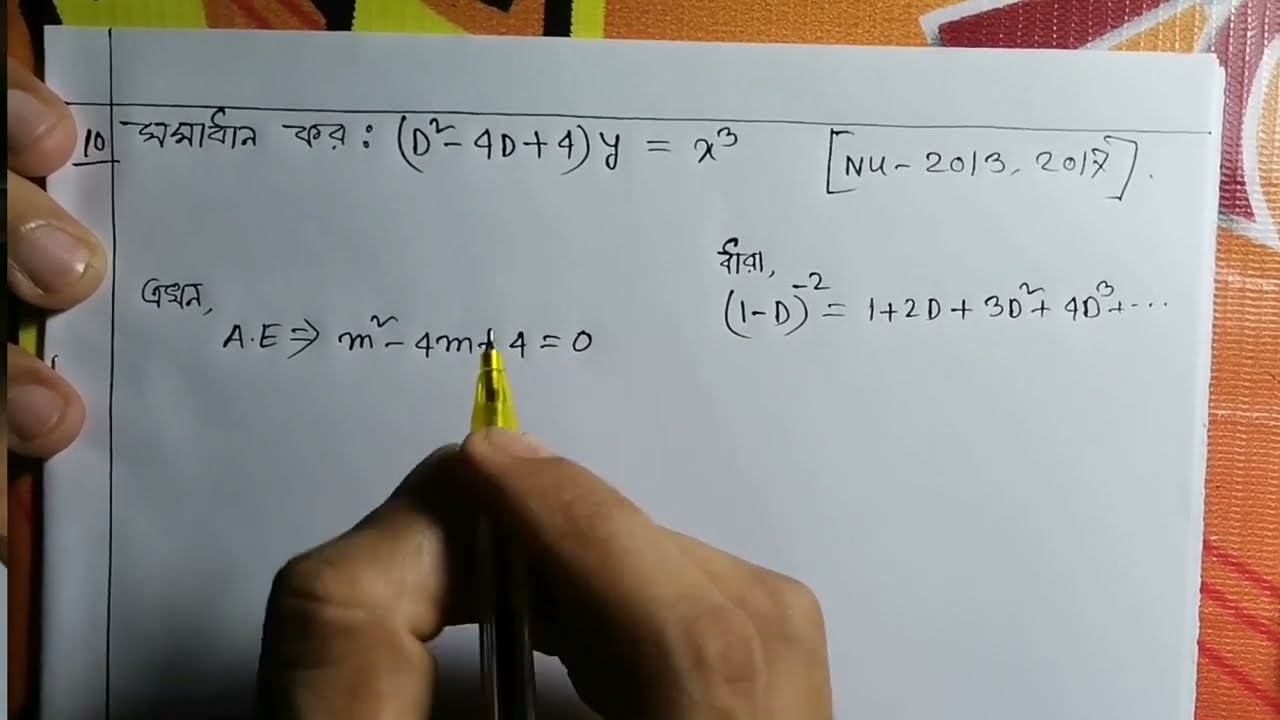 10 সমাধান কর : (D² - 4D + 4)y = x³ [NU - 2013, 2017].
ধারা,
(1-D)⁻² = 1 + 2D + 3D² + 4D³ + ...
এখন,
A.E ⇒ m² - 4m + 4 = 0